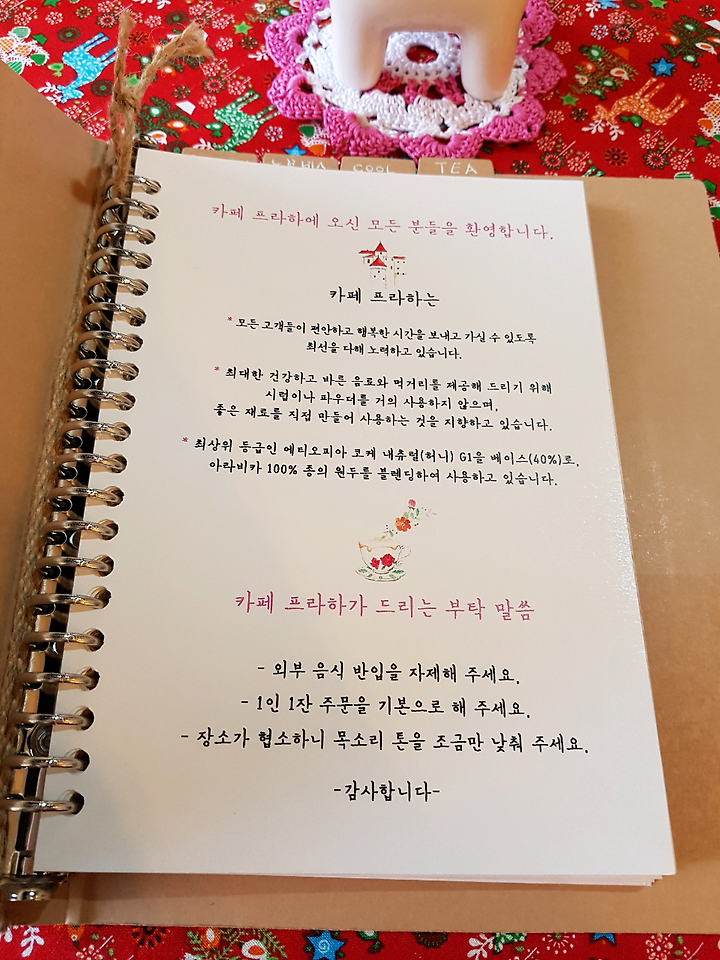 COOL
TEA
카페 프라하에 오신 모든 분들을 환영합니다.
카페 프라하는
* 모든 고객들이 편안하고 행복한 시간을 보내고 가실 수 있도록
최선을 다해 노력하고 있습니다.
* 최대한 건강하고 바른 음료와 먹거리를 제공해 드리기 위해
시럽이나 파우더를 거의 사용하지 않으며,
좋은 재료를 직접 만들어 사용하는 것을 지향하고 있습니다.
* 최상위 등급인 에티오피아 코케 내츄럴(허니) G1을 베이스(40%)로,
아라비카 100% 종의 원두를 블렌딩하여 사용하고 있습니다.
카페 프라하가 드리는 부탁 말씀
- 외부 음식 반입을 자제해 주세요.
- 1인 1잔 주문을 기본으로 해 주세요.
- 장소가 협소하니 목소리 톤을 조금만 낮춰 주세요.
-감사합니다-